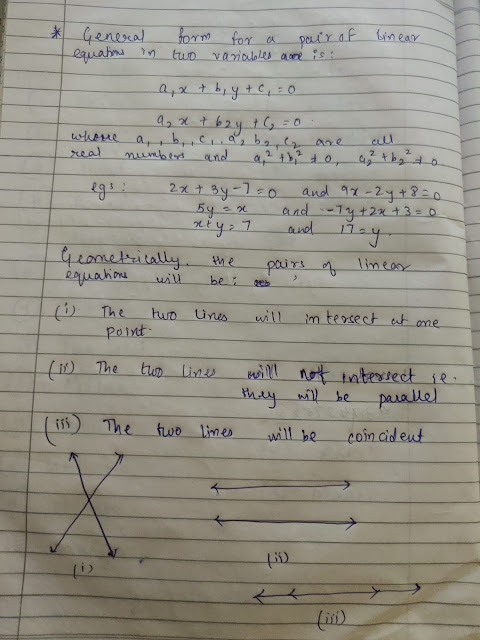 * General form for a pair of linear
equations in two variables are is:
a₁x + b₁y + c₁ = 0
a₂x + b₂y + c₂ = 0.
whose a₁, b₁, c₁, a₂, b₂, c₂ are all
real numbers and a₁² + b₁² ≠ 0, a₂² + b₂² ≠ 0
egs: 2x + 3y - 7 = 0 and 9x - 2y + 8 = 0
5y = x and -7y + 2x + 3 = 0
x + y = 7 and 17 = y.
Geometrically, the pairs of linear
equations will be:
(i) The two lines will intersect at one
point.
(ii) The two lines will not intersect ie.
they will be parallel
(iii) The two lines will be coincident
(i)
(ii)
(iii)